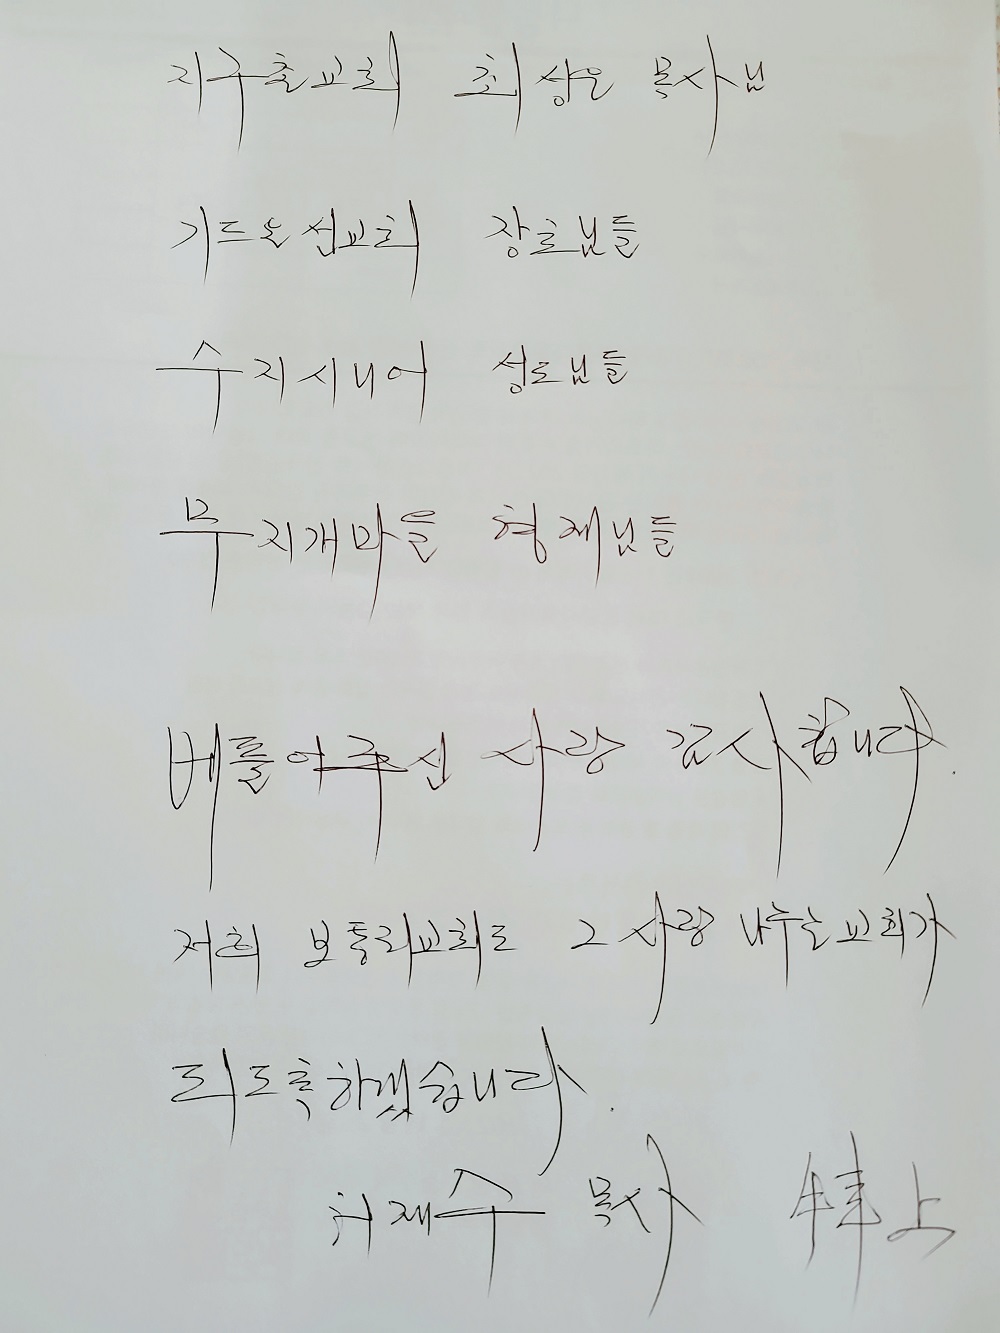 지구촌교회 최상은 목사님
기드온선교회 장로님들
수지시니어 성도님들
무지개마을 형제님들
베풀어주신 사랑 감사합니다.
저희 보통리교회도 그 사랑 나누는 교회가
되도록하겠습니다.
허재수 목사 拜上